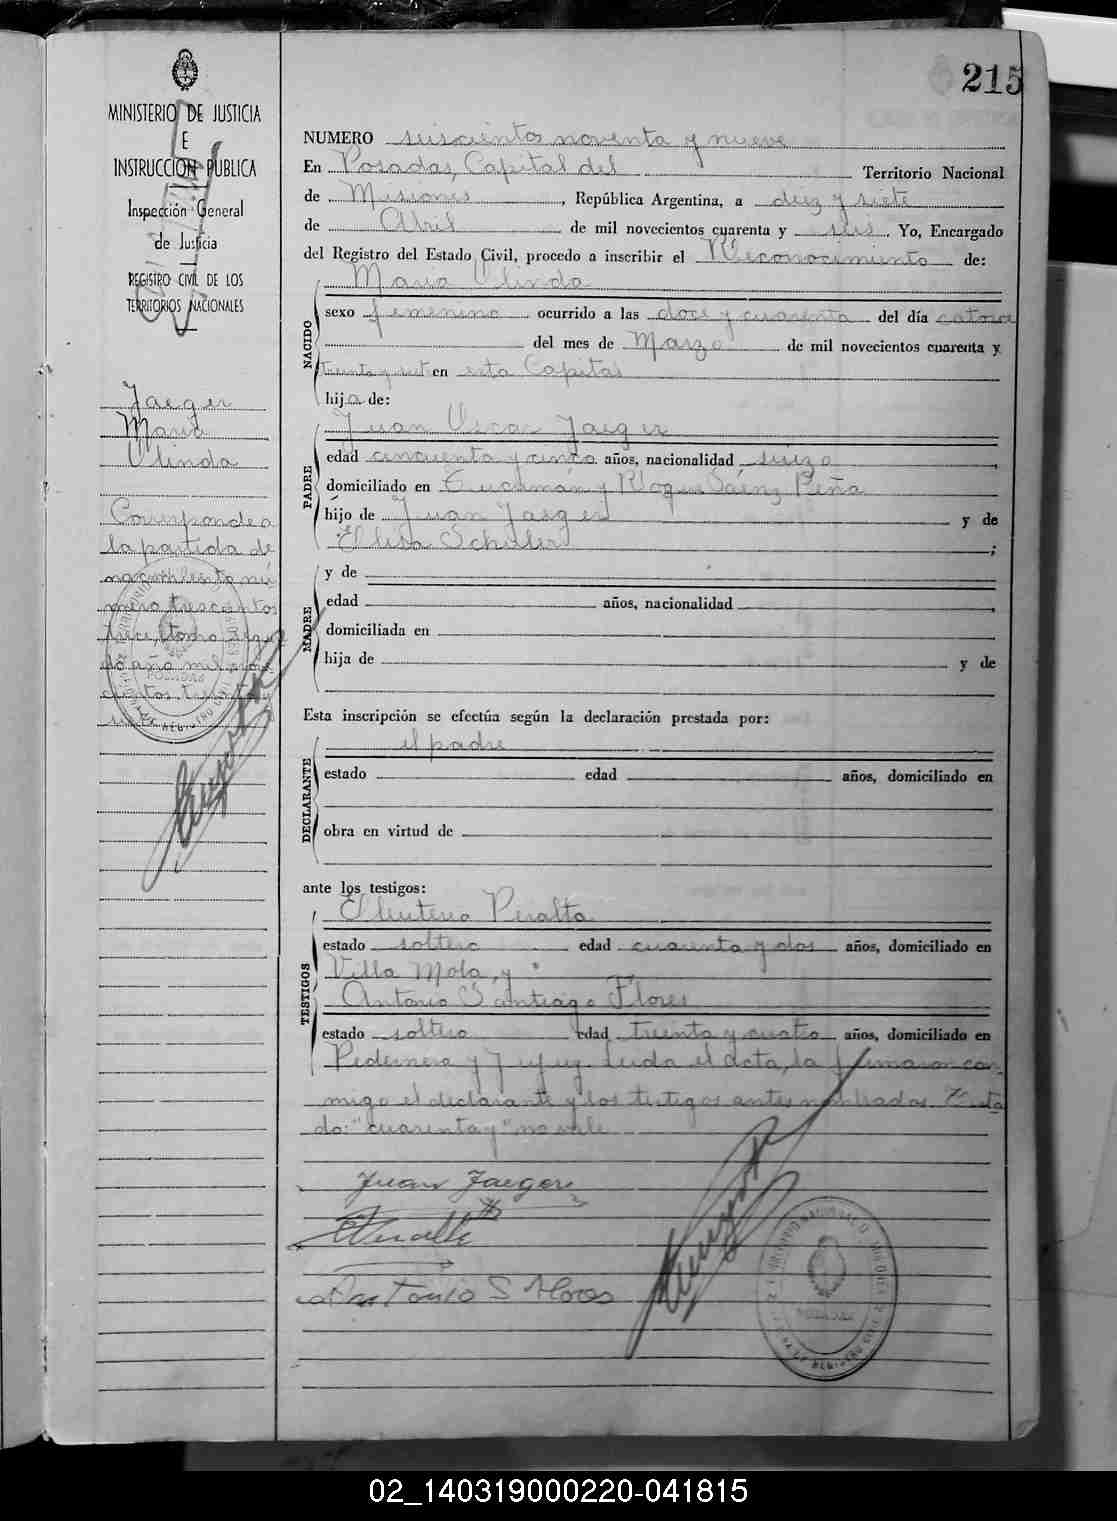 215
MINISTERIO DE JUSTICIA
E
INSTRUCCION PUBLICA
Inspección General
de Justicia
REGISTRO CIVIL DE LOS
TERRITORIOS NACIONALES
Jaeger
Maria
Olinda
Corresponde a
la partida de
nacimiento nú
mero trescientos
trece, tomo segun
do año mil nove
cientos treinta y
NUMERO seiscientos noventa y nueve
En Posadas, Capital del Territorio Nacional
de Misiones, República Argentina, a diez y siete
de Abril de mil novecientos cuarenta y seis. Yo, Encargado
del Registro del Estado Civil, procedo a inscribir el Reconocimiento de:
Maria Olinda
NACIDO
sexo femenino ocurrido a las doce y cuarenta del día catorce
del mes de Marzo de mil novecientos cuarenta y
treinta y siete en esta Capital
hija de:
Juan Oscar Jaeger
PADRE
edad cincuenta y cinco años, nacionalidad suizo,
domiciliado en Tucumán y Roque Saenz Peña
hijo de Juan Jaeger y de
Elisa Schuler;
MADRE
y de
edad años, nacionalidad,
domiciliada en
hija de y de
Esta inscripción se efectúa según la declaración prestada por:
el padre
DECLARANTE
estado edad años, domiciliado en
obra en virtud de
ante los testigos:
Eleuterio Peralta
TESTIGOS
estado soltero edad cuarenta y dos años, domiciliado en
Villa Mola, y
Antonio Santiago Flores
estado soltero edad treinta y cuatro años, domiciliado en
Pedernera y Jujuy. Leida el acta, la firmaron con-
migo el declarante y los testigos antes nombrados. Testa
do: "cuarenta y" no vale
Juan Jaeger
EPeralta
Antonio S Flores
02_140319000220-041815